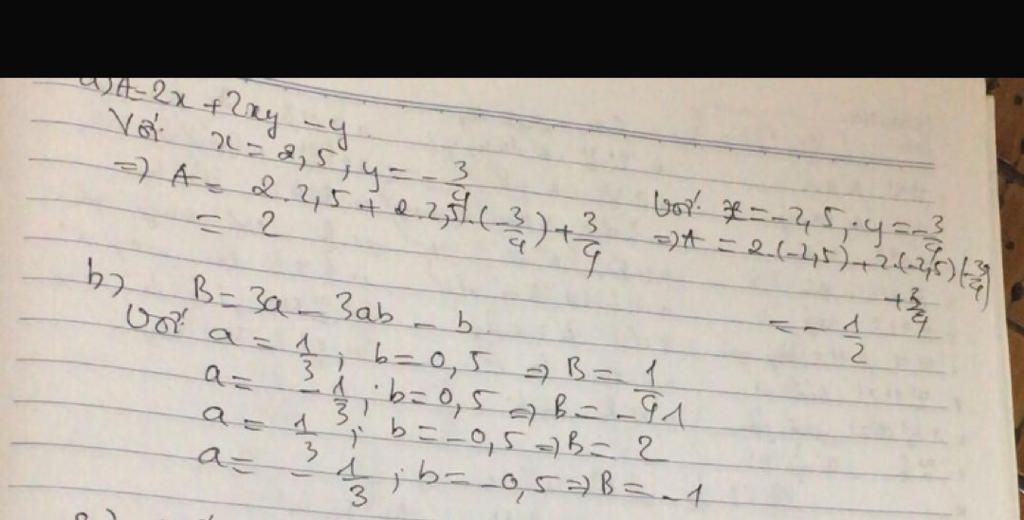 a) A = 2x + 2xy - y
Với x = 2,5 ; y = -3/4
=> A = 2.2,5 + 2.2,5.(-3/4) + 3/4
= 2
Với x = -2,5 ; y = -3/4
=> A = 2.(-2,5) + 2.(-2,5)(-3/4)
+ 3/4
= -1/2
b) B = 3a - 3ab - b
Với a = 1/3 ; b = 0,5 => B =
a = -1/3 ; b = 0,5 => B = -1
a = 1/3 ; b = -0,5 => B = 2
a = -1/3 ; b = -0,5 => B = -1